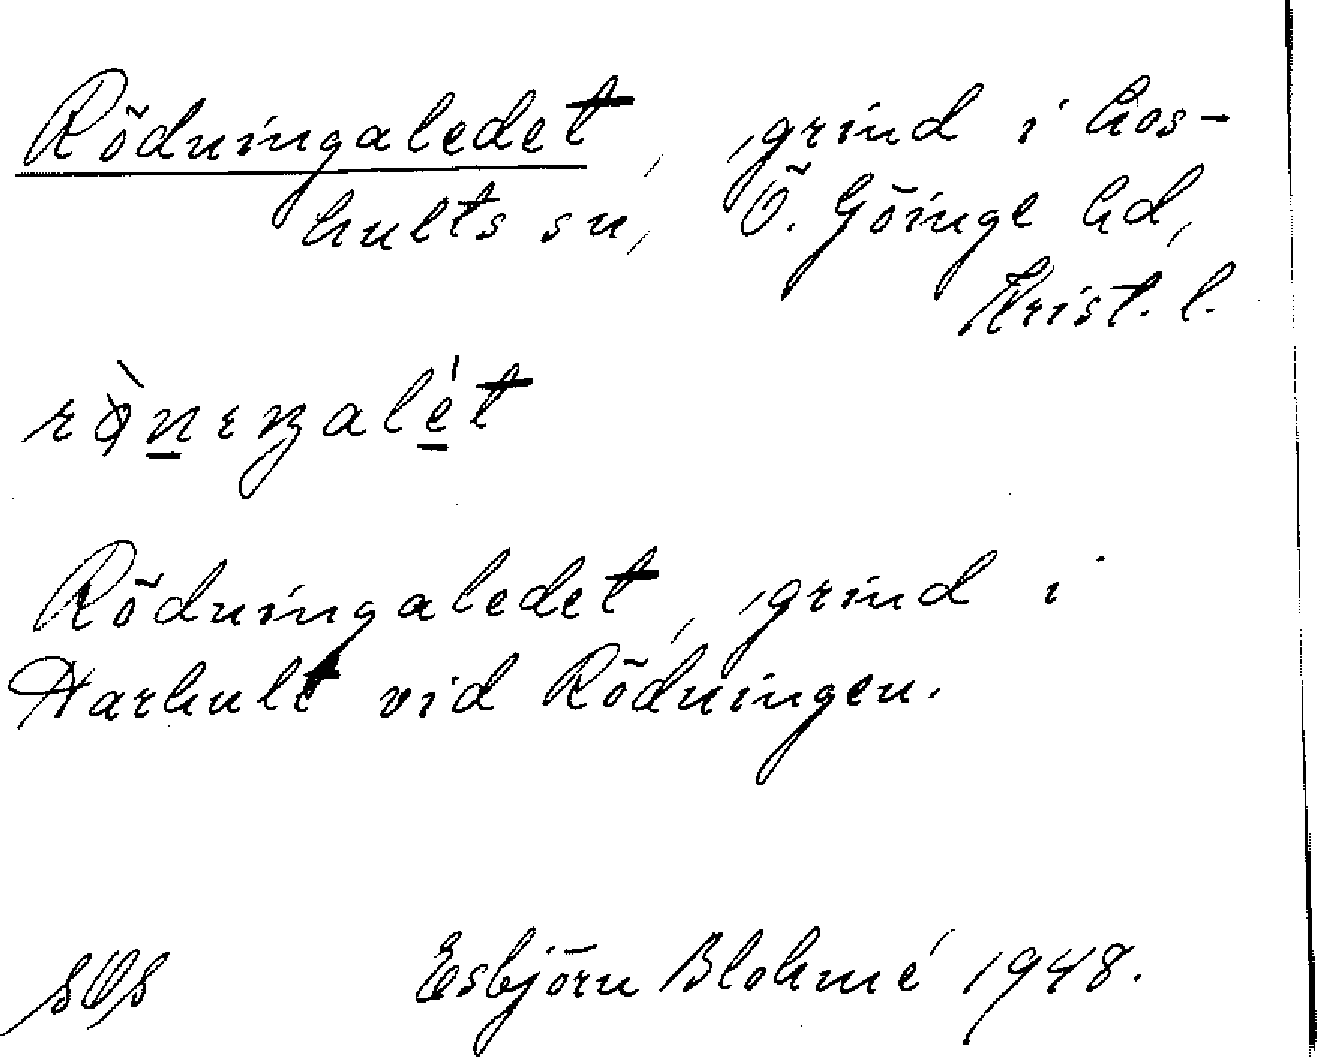 Rödningaledet, grind i Los-
hults sn, Ö. Göinge hd,
Krist. l.
Rödningaledet, grind i
Harhult vid Rödningen.
Esbjörn Blohmé 1948.